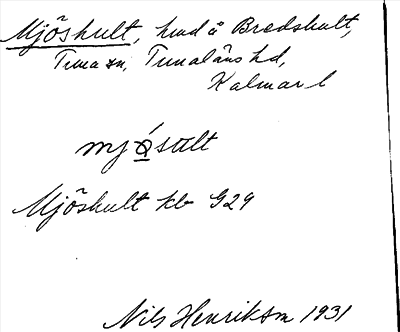 Mjöshult, hmd å Bredshult,
Tuna sn, Tunaläns hd,
Kalmar l
mjösult
Mjöshult kb G29
Nils Henriksson 1931